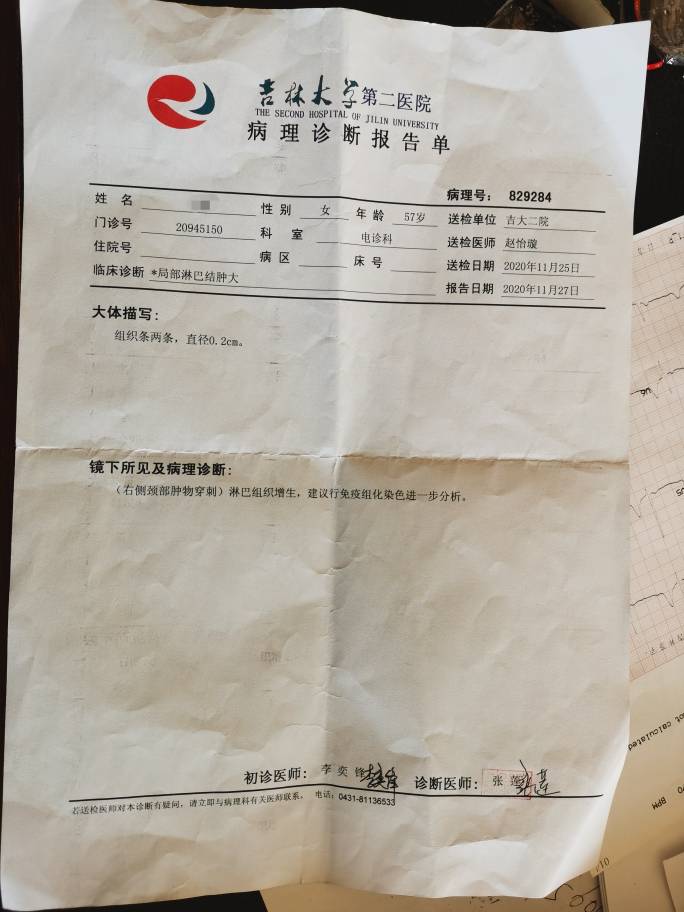 吉林大学第二医院
THE SECOND HOSPITAL OF JILIN UNIVERSITY
病理诊断报告单
病理号: 829284
姓 名 性 别 女 年 龄 57岁 送检单位 吉大二院
门诊号 20945150 科 室 电诊科 送检医师 赵怡璇
住院号 病 区 床 号 送检日期 2020年11月25日
临床诊断 *局部淋巴结肿大 报告日期 2020年11月27日
大体描写:
组织条两条，直径0.2cm。
镜下所见及病理诊断:
（右侧颈部肿物穿刺）淋巴组织增生，建议行免疫组化染色进一步分析。
初诊医师: 李奕锋 诊断医师: 张莲
若送检医师对本诊断有疑问，请立即与病理科有关医师联系。 电话: 0431-81136533
not calculated
BPM